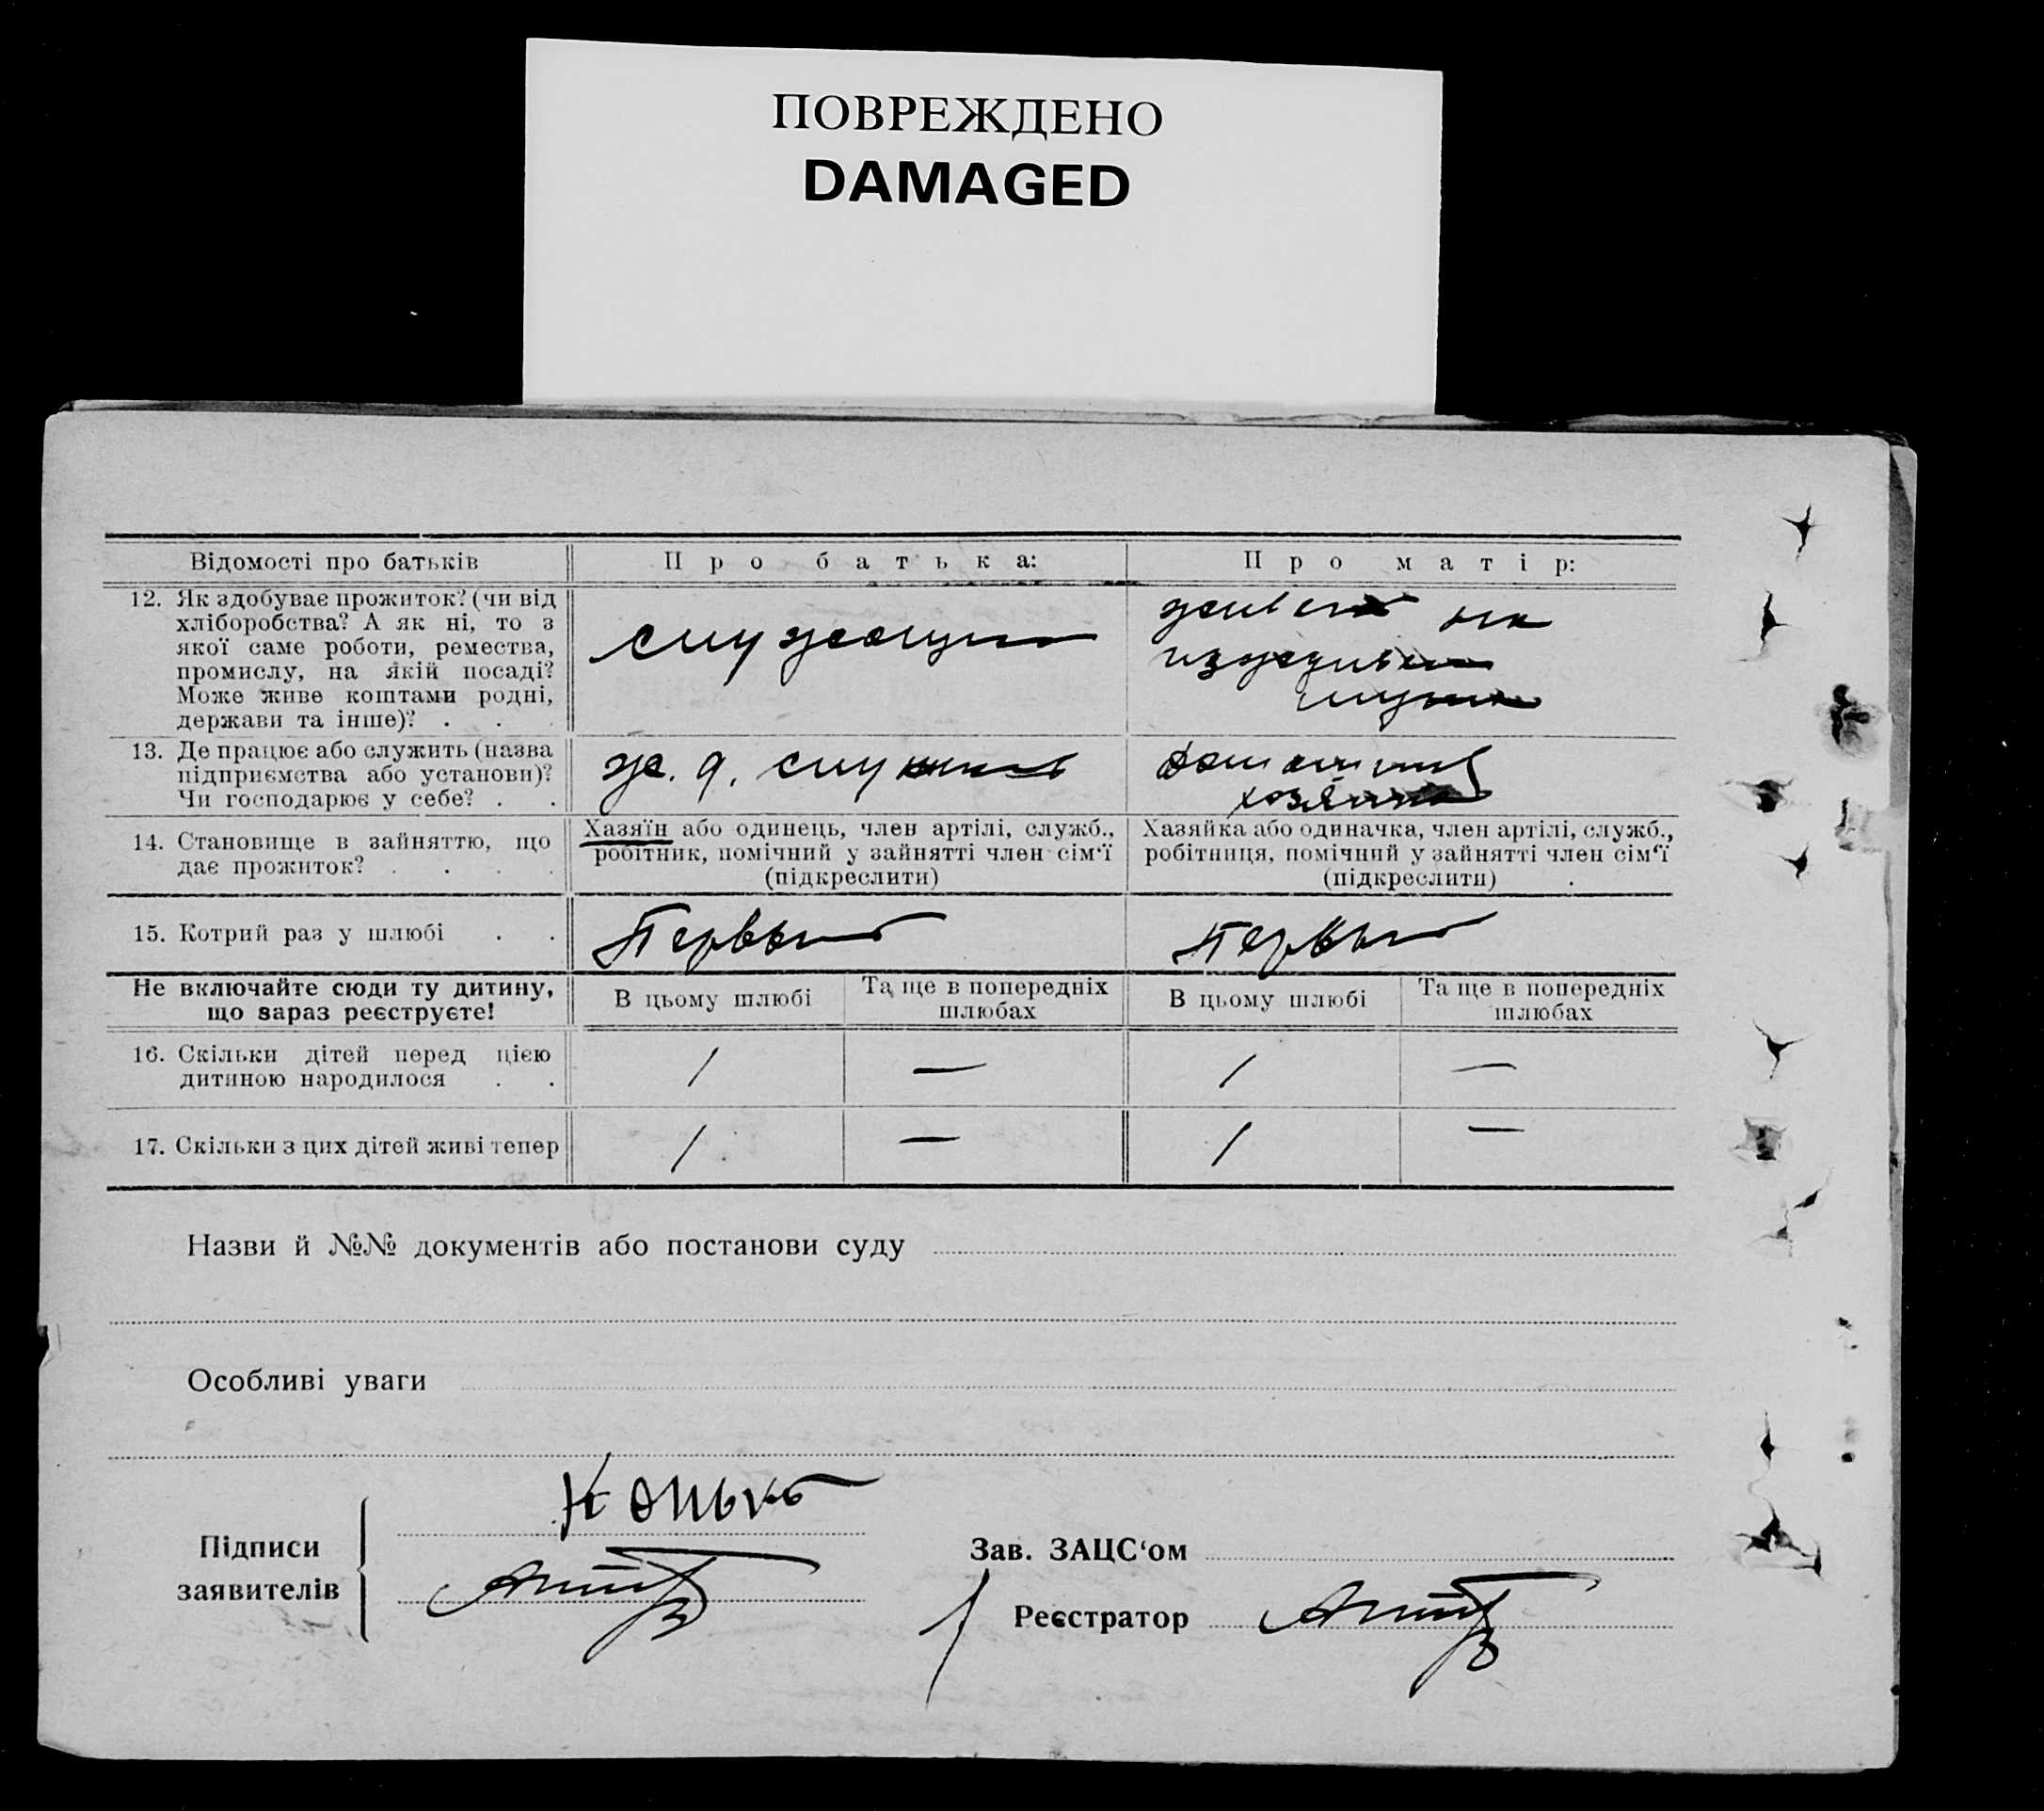 ПОВРЕЖДЕНО
DAMAGED
Відомості про батьків
Про батька:
Про матір:
12. Як здобуває прожиток? (чи від
хліборобства? А як ні, то з
якої саме роботи, ремества,
промислу, на якій посаді?
Може живе коштами родні,
держави та інше)? . . .
служащий
живет на
иждивении
мужа
13. Де працює або служить (назва
підприємства або установи)?
Чи господарює у себе? . .
ж. д.
домашняя
хозяйка
14. Становище в зайняттю, що
дає прожиток? . . . .
Хазяїн або одинець, член артілі, служб.,
робітник, помічний у зайнятті член сім‘ї
(підкреслити)
Хазяйка або одиначка, член артілі, служб.,
робітниця, помічний у зайнятті член сім‘ї
(підкреслити) .
15. Котрий раз у шлюбі . .
Первый
Первый
Не включайте сюди ту дитину,
що зараз реєструєте!
В цьому шлюбі
Та ще в попередніх
шлюбах
В цьому шлюбі
Та ще в попередніх
шлюбах
16. Скільки дітей перед цією
дитиною народилося . .
1 — 1 —
17. Скільки з цих дітей живі тепер
1 — 1 —
Назви й №№ документів або постанови суду
Особливі уваги
Підписи
заявителів
Конько
Зав. ЗАЦС‘ом
Реєстратор